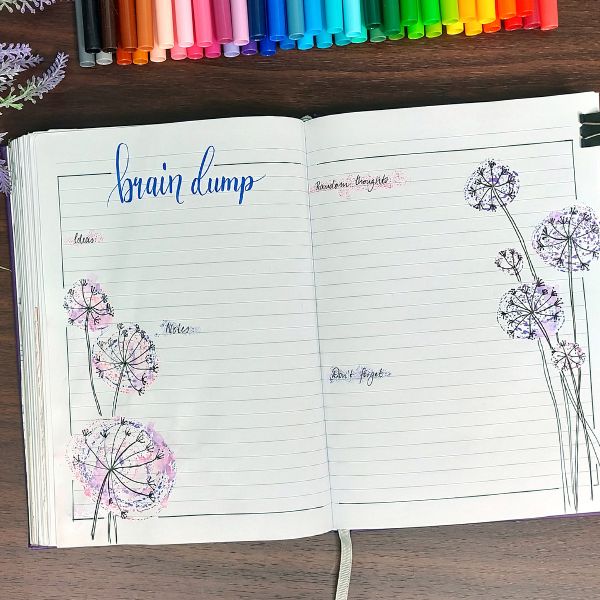 brain dump
Ideas
Notes
Random thoughts
Don't forget